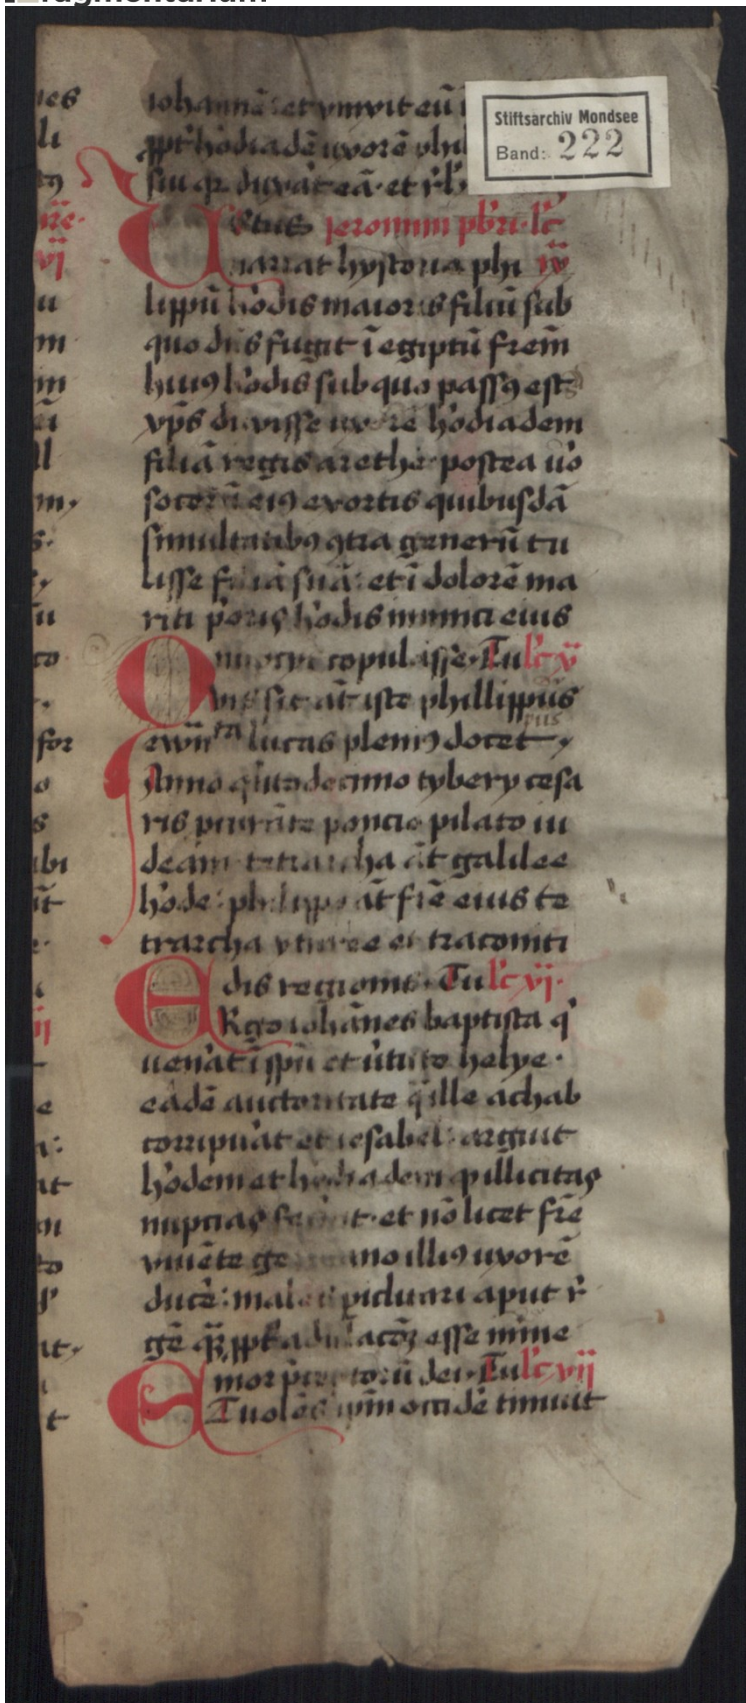 fragmentarium
Stiftsarchiv Mondsee
Band: 222
iohannē et vinxit eū
ꝓpt' h'odiadē uxorē phi
sui qz duxāt eā et
Uetus jeronimi pb'ri lc̄
narrat hystoria phi iv
lippū h'odis maioris filiū sub
quo dn̄s fugit ī egiptū frem̄
huiꝰ h'odis sub quo passꝰ est
xp̄s duxisse uxorē h'odiadem
filiā regis arethe postea u'o
socerū eiꝰ exortis quibusdā
simultatibꝰ ꝯtra generū tu
lisse filiā suā et ī dolorē ma
riti p'oris h'odis inimici eius
nuptiis copulasse Tu lc̄ v
Quis sit āt iste phillippus
ewn̄ta lucas pleniꝰ docet
Anno quitodecimo tybery cesa
ris ꝓcurāte poncio pilato iu
deam tetrarcha āt galilee
h'ode philippo āt fr̄e eius te
trarcha yturee et traconiti
dis regionis Tu lc̄ vj
Ergo iohānes baptista q'
uenāt ī spū et ūtute helye
eadē auctoritate q̄ ille achab
corripuāt et iesabel arguit
h'odem et hodiadem ꝙ illicitas
nuptias et nō licet fr̄e
viuēte germano illiꝰ uxorē
ducē malens piclitari aput r
gē qz ꝓpt' adulacōz esse inme
mor p'ceptorū dei Tu lc̄ vij
Et uolēs ip̄m occidē timuit
es
li
vj
u
m
m
ll
m
s
u
to
for
o
s
ubi
e
at
to
t